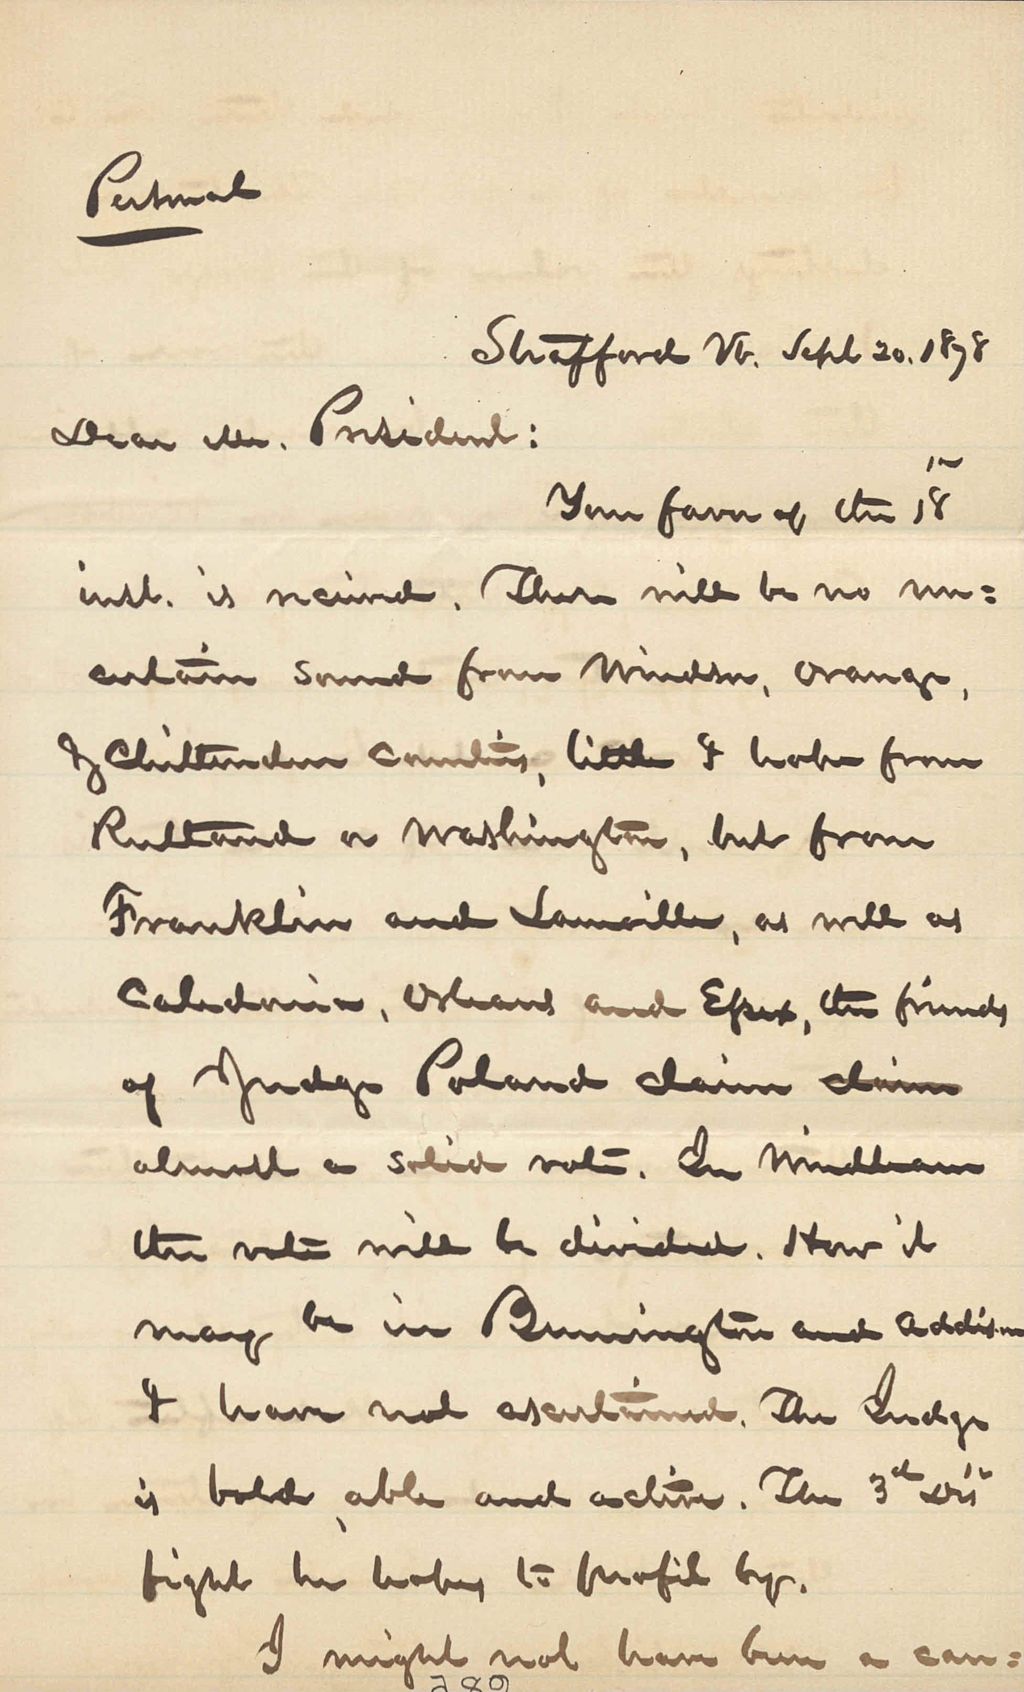 Personal
Strafford Vt. Sept 20. 1878
Dear Mr. President:
Your favor of the 18th
inst. is received. There will be no un=
certain sound from Windsor, Orange,
& Chittenden Counties, little I hope from
Rutland or Washington, but from
Franklin and Lamoille, as well as
Caledonia, Orleans and Essex, the friends
of Judge Poland claim claim
almost a solid vote. In Windham
the vote will be divided. How it
may be in Bennington and Addison
I have not ascertained. The Judge
is bold, able and active. The 3d Dist
fight he hopes to profit by.
I might not have been a can=
289